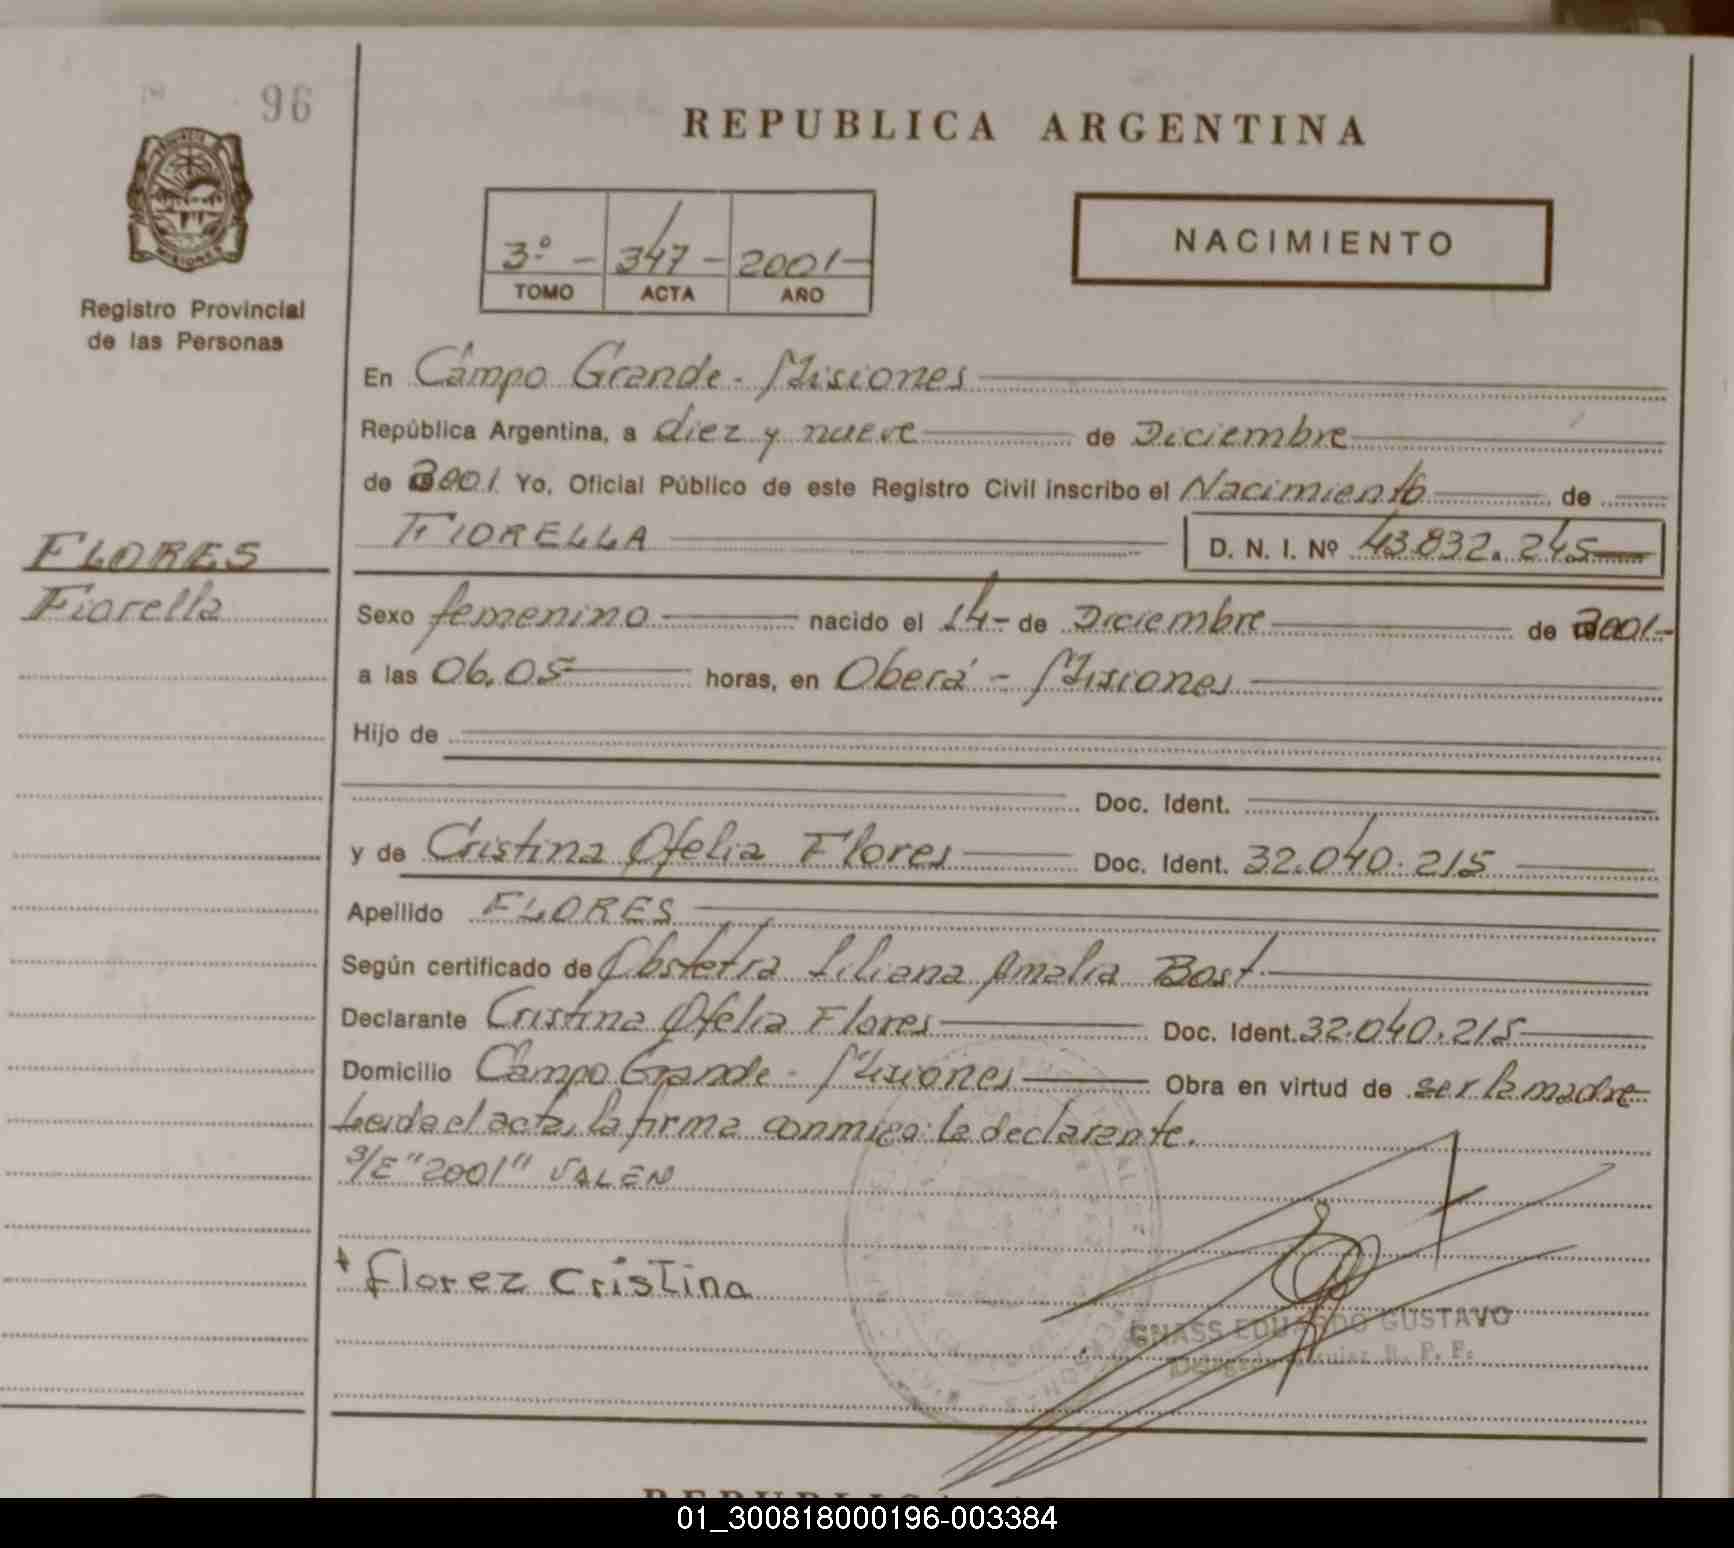 96
REPUBLICA ARGENTINA
MISIONES
Registro Provincial
de las Personas
3º - 347 - 2001 -
TOMO ACTA AÑO
NACIMIENTO
En Campo Grande - Misiones
República Argentina, a diez y nueve de Diciembre
de 2001 Yo, Oficial Público de este Registro Civil inscribo el Nacimiento de
FIORELLA D. N. I. Nº 43.832.245
FLORES
Fiorella
Sexo femenino nacido el 14- de Diciembre de 2001-
a las 06,05 horas, en Oberá - Misiones
Hijo de
Doc. Ident.
y de Cristina Ofelia Flores Doc. Ident. 32.040.215
Apellido FLORES
Según certificado de Obstetra Liliana Amalia Bast
Declarante Cristina Ofelia Flores Doc. Ident. 32.040.215
Domicilio Campo Grande - Misiones Obra en virtud de ser la madre
Leida el acta, la firma conmigo: la declarante.
S/E "2001" VALEN
Florez Cristina
GNASS EDUARDO GUSTAVO
R. P. P.
01_300818000196-003384